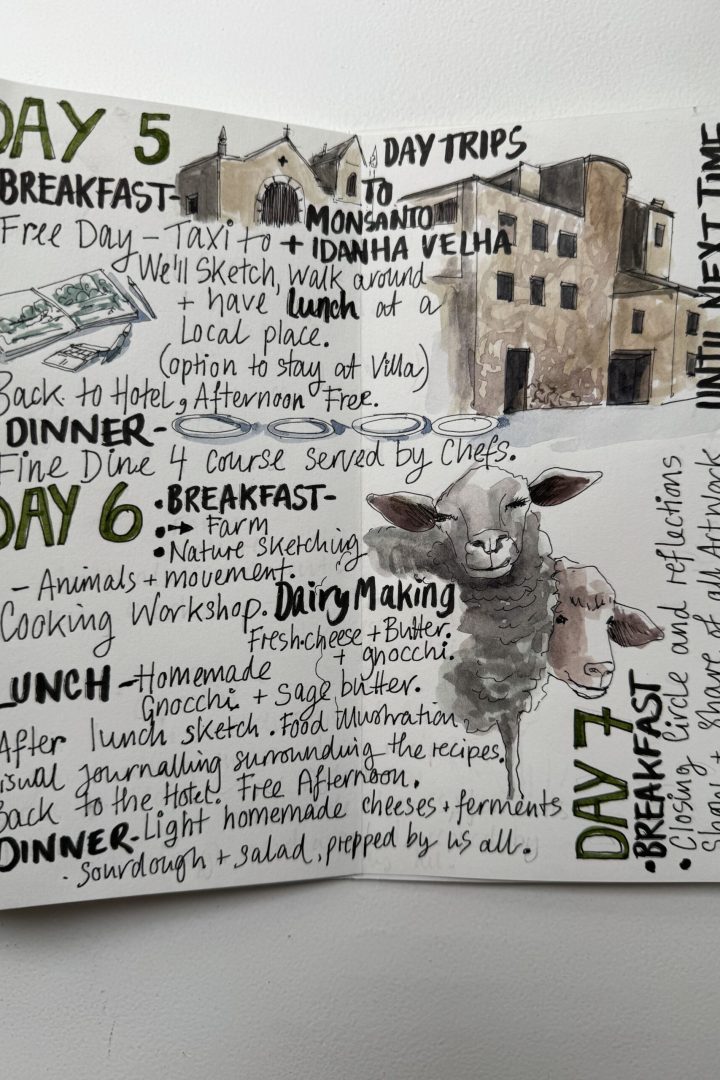 DAY 5
BREAKFAST-
DAY TRIPS
TO
MONSANTO
+ IDANHA VELHA
Free Day - Taxi to
We'll Sketch, walk around
+ have lunch at a
Local place.
(option to stay at Villa)
Back to Hotel, Afternoon Free.
DINNER-
Fine Dine 4 course served by Chefs.
DAY 6
• BREAKFAST-
• → Farm
• Nature sketching
- Animals + movement.
Cooking Workshop. Dairy Making
Fresh cheese + Butter.
+ gnocchi.
LUNCH - Homemade
Gnocchi + Sage butter.
After lunch sketch. Food Illustration,
visual journalling surrounding the recipes.
Back to the Hotel. Free Afternoon.
DINNER- Light homemade cheeses + ferments
• sourdough + salad, prepped by us all.
DAY 7
• BREAKFAST
• Closing Circle and reflections
Show + Share of all Artwork
UNTIL NEXT TIME